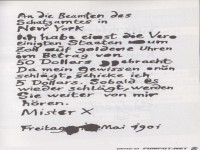 An die Beamten des
Schatzamtes in
New York
Ich habe einst die Vere
einigten Staaten um
Zoll auf goldene Uhren
im Betrag von
50 Dollars gebracht
Da mein Gewissen nun
schlägt, schicke ich
5 Dollars. Sobald es
wieder schlägt, werden
Sie weiter von mir
hören.
Mister X
Freitag Mai 1901